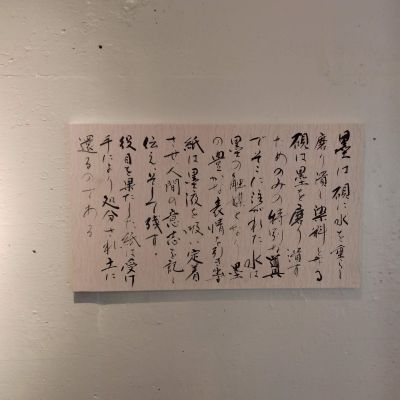 墨は硯に水を垂らし
磨り潰し染料となる
硯は墨を磨り潰す
ためのみの特別な道具
でそこに注がれた水は
墨の触媒となり墨
の豊かな表情を引き出す
紙は墨液を吸い定着
させ人間の意志を記し
伝えそして残す。
役目を果たした紙は受け
手により処分され土に
還るのである